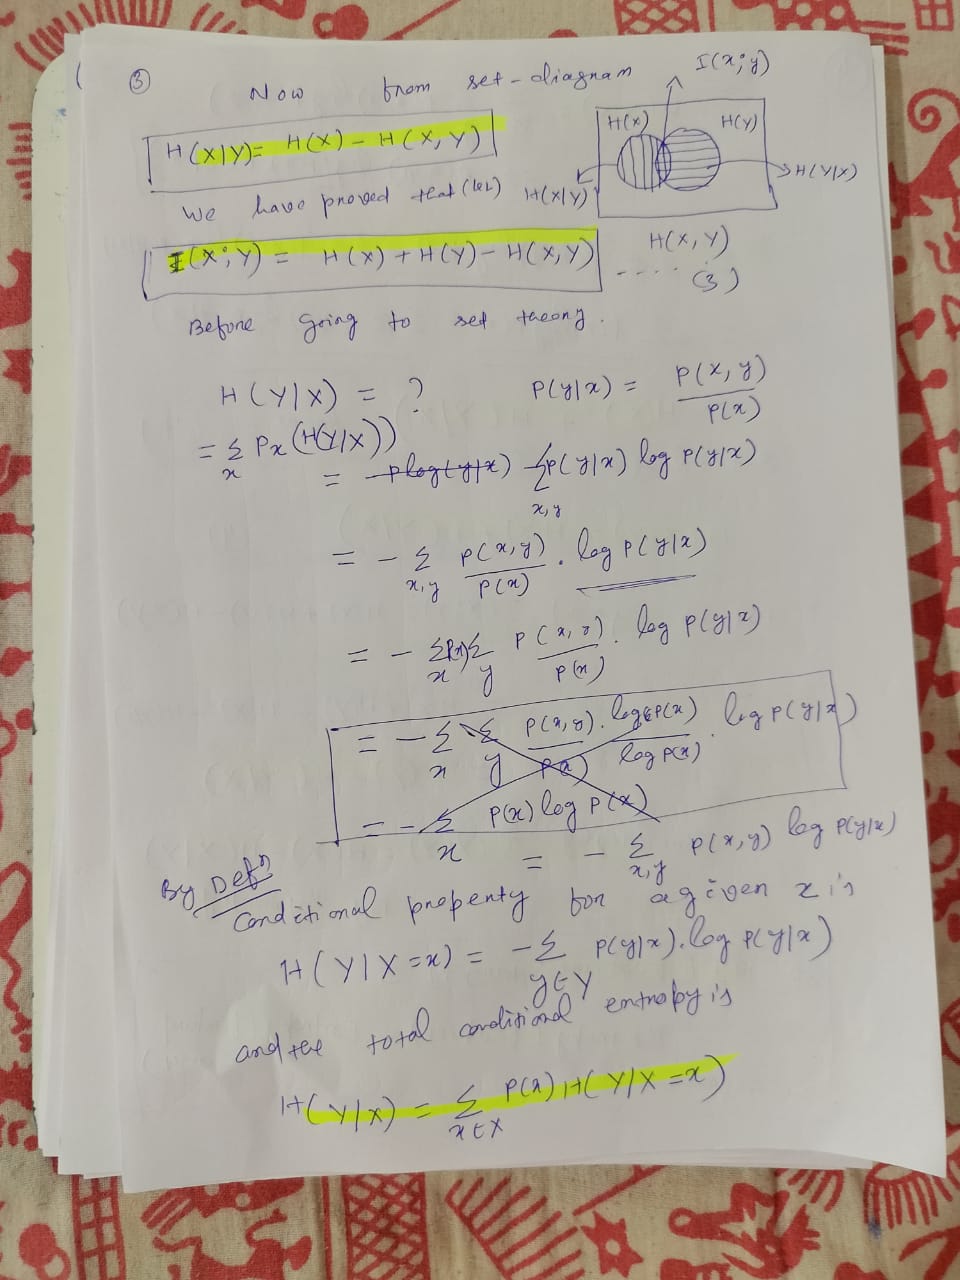 ③
Now from set-diagram
I(x;y)
H(X|Y)= H(X) - H(X,Y)
H(X) H(Y)
H(X|Y) H(Y|X)
H(X,Y)
We have proved that
I(X;Y) = H(X) + H(Y) - H(X,Y) .... (3)
Before going to set theory.
H(Y|X) = ? P(y|x) = P(x,y) / P(x)
= Σ_x Px (H(Y|X))
= plog(y|x) Σ_x,y P(y|x) log P(y|x)
= - Σ_x,y P(x,y) / P(x) . log P(y|x)
= - Σ_x P(x) Σ_y P(x,y) / P(x) . log P(y|x)
= - Σ_x Σ_y P(x,y) / P(x) . log P(x) / log P(x) . log P(y|x)
= - Σ_x P(x) log P(x)
= - Σ_x,y P(x,y) log P(y|x)
By Defn
Conditional propenty for a given x is
H(Y|X=x) = -Σ_y∈Y P(y|x).log P(y|x)
and the total conditional entropy is
H(Y|X) = Σ_x∈X P(x) H(Y|X=x)